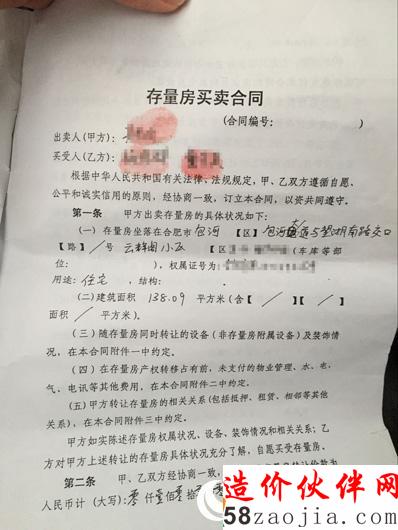 存量房买卖合同
(合同编号: )
出卖人(甲方):
买受人(乙方):
根据中华人民共和国有关法律、法规规定,甲、乙双方遵循自愿、
公平和诚实信用的原则,经协商一致,订立本合同,以资共同遵守。
第一条 甲方出卖存量房的具体状况如下:
(一)存量房坐落在合肥市 包河 【区】 包河 道与望湖南路交口
【路】 / 号 云 小区 【区 (车库等部
位: ),权属证号为:
用途: 住宅 ,结构:
(二)建筑面积 138.09 平方米(含【 / 】【 / 】
面积 / 平方米)。
(三)随存量房同时转让的设备(非存量房附属设备)及装饰情
况,在本合同附件一中约定。
(四)在存量房产权转移占有前,未支付的物业管理、水、电、
气、电讯等其他费用,在本合同附件二中约定。
(五)甲方转让存量房的相关关系(包括抵押、租赁、相邻等其他
关系),在合同附件三中约定。
甲方如实陈述存量房权属状况、设备、装饰情况和相关关系;乙
方对甲方上述转让的存量房具体状况充分了解,自愿买受存量房。
第二条 甲、乙双方经协商一致,
人民币计(大写): 零 仟 壹 佰 零 拾
造价伙伴网
58zaojia.com